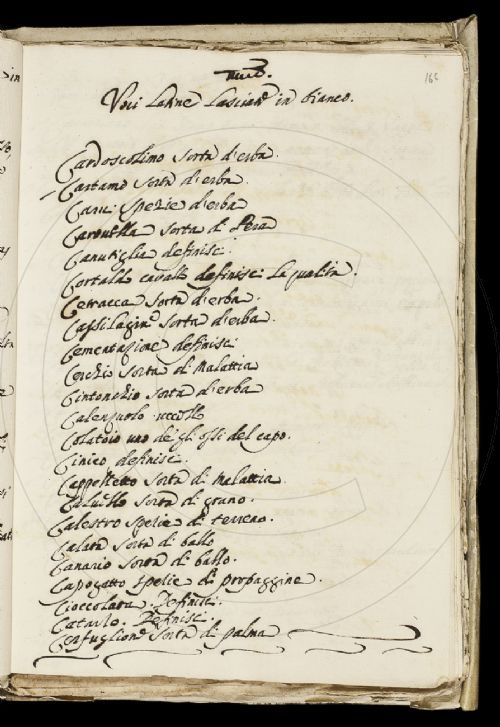 165
Voci Latine Lasciate in bianco.
Cardoscolimo sorta d'erba.
Cartamo sorta d'erba.
Carui spezie d'erba
Carovella sorta di Pera
Canutiglia definisci
Cortaldo cavallo definisci la qualità.
Cetracca sorta d'erba.
sorta d'erba.
Cementazione definisci
Cerchio sorta di Malattia
Cintonchio sorta d'erba
Calenzuolo uccello
Colatoio uno de gli ossi del capo.
Cinico definisci.
Cappelletto sorta di Malattia.
Calvello sorta di grano.
Calestro spezie di terreno.
Calata sorta di ballo
Canario sorta di ballo.
Capogatto spezie di propaggine.
Cioccolata. Definisci.
Catarlo. Definisci.
Cerfuglione sorta di palma